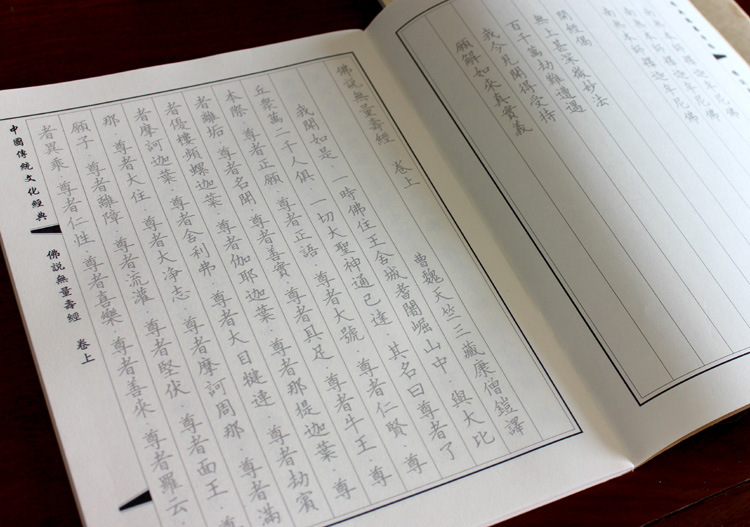 南無本師釋迦牟尼佛
南無本師釋迦牟尼佛
南無本師釋迦牟尼佛
開經偈
無上甚深微妙法
百千萬劫難遭遇
我今見聞得受持
願解如來真實義
佛說無量壽經 卷上
曹魏天竺三藏康僧鎧譯
我聞如是．一時佛住王舍城耆闍崛山中．與大比
丘眾萬二千人俱．一切大聖神通已達．其名曰尊者了
本際．尊者正願．尊者正語．尊者大號．尊者仁賢．尊
者離垢．尊者名聞．尊者善實．尊者具足．尊者牛王．尊
者優樓頻螺迦葉．尊者伽耶迦葉．尊者那提迦葉．尊
者摩訶迦葉．尊者舍利弗．尊者大目揵連．尊者劫賓
那．尊者大住．尊者大净志．尊者摩訶周那．尊者滿
願子．尊者離障．尊者流灌．尊者堅伏．尊者面王．尊
者異乘．尊者仁性．尊者喜樂．尊者善來．尊者羅云．
中國傳統文化經典
佛說無量壽經 卷上